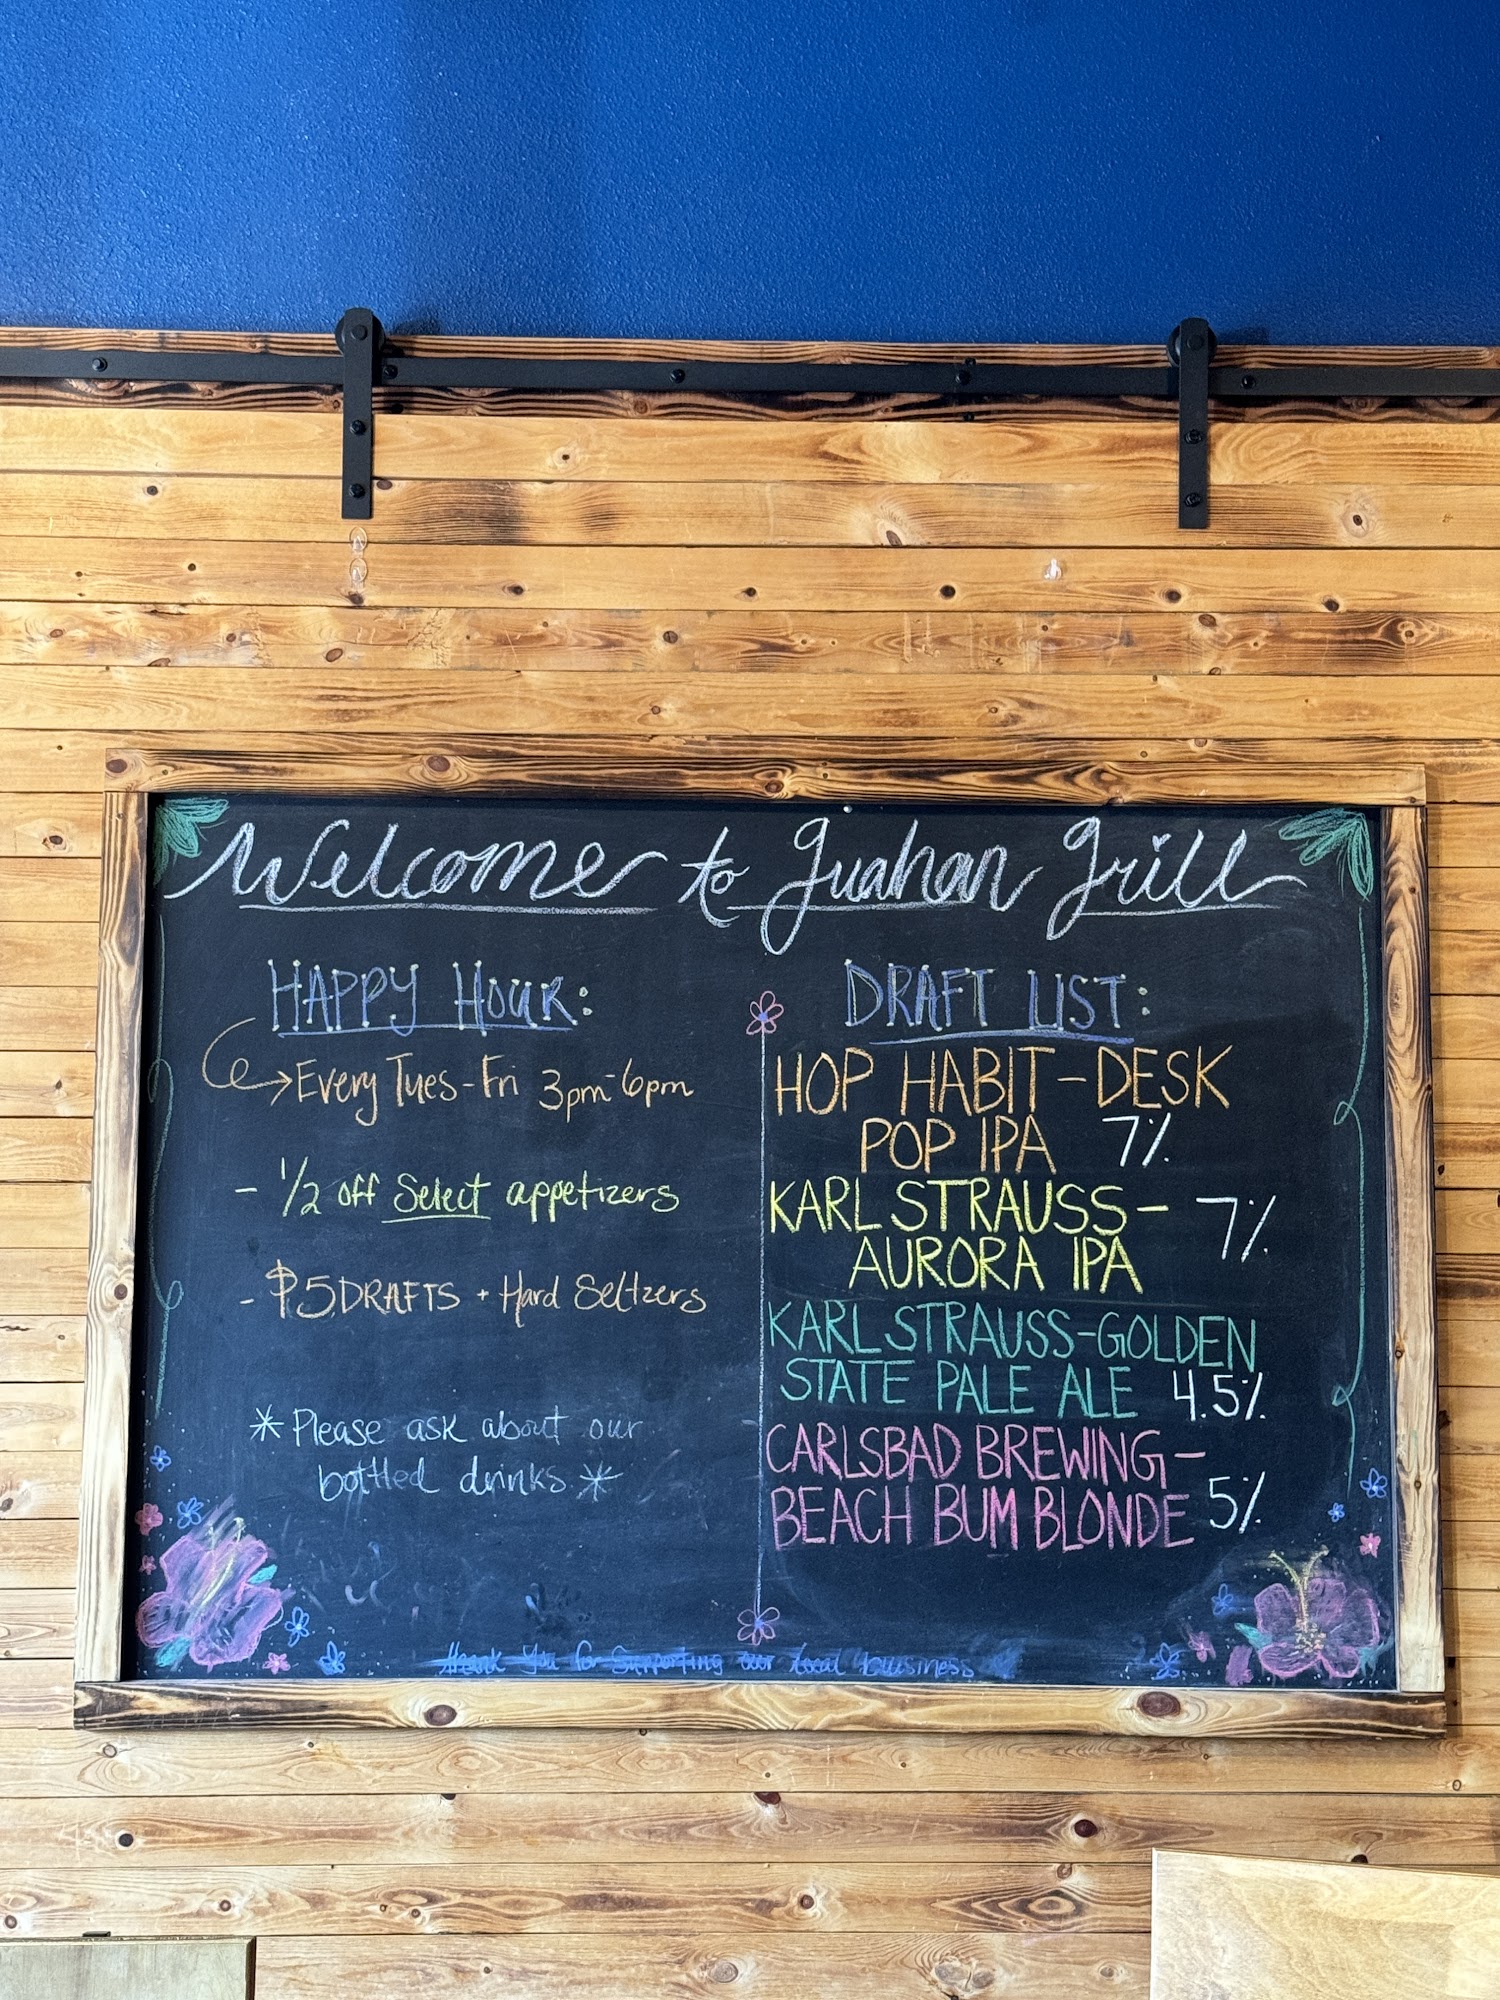 Welcome to Guahan Grill
HAPPY HOUR:
Every Tues-Fri 3pm-6pm
- 1/2 off Select appetizers
- $5 DRAFTS + Hard Seltzers
* Please ask about our
bottled drinks *
DRAFT LIST:
HOP HABIT-DESK
POP IPA 7%
KARL STRAUSS- 7%
AURORA IPA
KARL STRAUSS-GOLDEN
STATE PALE ALE 4.5%
CARLSBAD BREWING-
BEACH BUM BLONDE 5%
thank you for supporting our local business